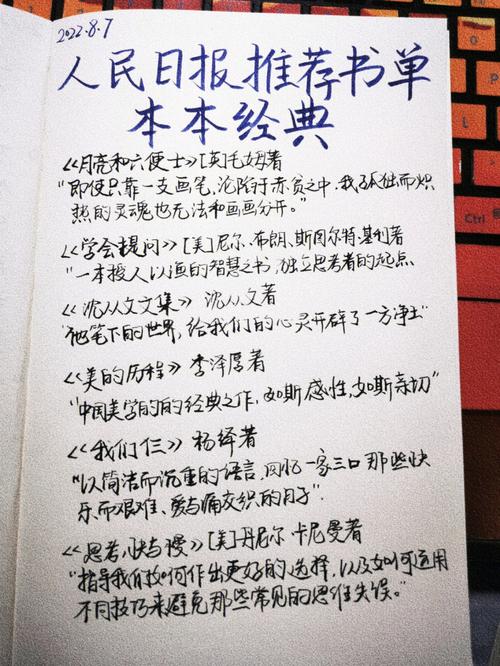 2022.8.7
人民日报推荐书单
本本经典
《月亮和六便士》[英]毛姆著
"即使只靠一支画笔,沦陷于赤贫之中,我孤独而炽
热的灵魂也无法和画画分开。"
《学会提问》[美]尼尔.布朗、斯图尔特.基利著
"一本授人以渔的智慧之书,独立思考者的起点
《沈从文文集》 沈从文著
"他笔下的世界,给我们的心灵开辟了一方净土"
《美的历程》李泽厚著
"中国美学的的经典之作,如斯感性,如斯亲切"
《我们仨》杨绛著
"以简洁而沉重的语言,回忆一家三口那些快
乐而艰难、爱与痛交织的日子".
《思考,快与慢》[美]丹尼尔.卡尼曼著
"指导我们如何作出更好的选择,以及如何运用
不同技巧来避免那些常见的思维失误。"
Ctrl